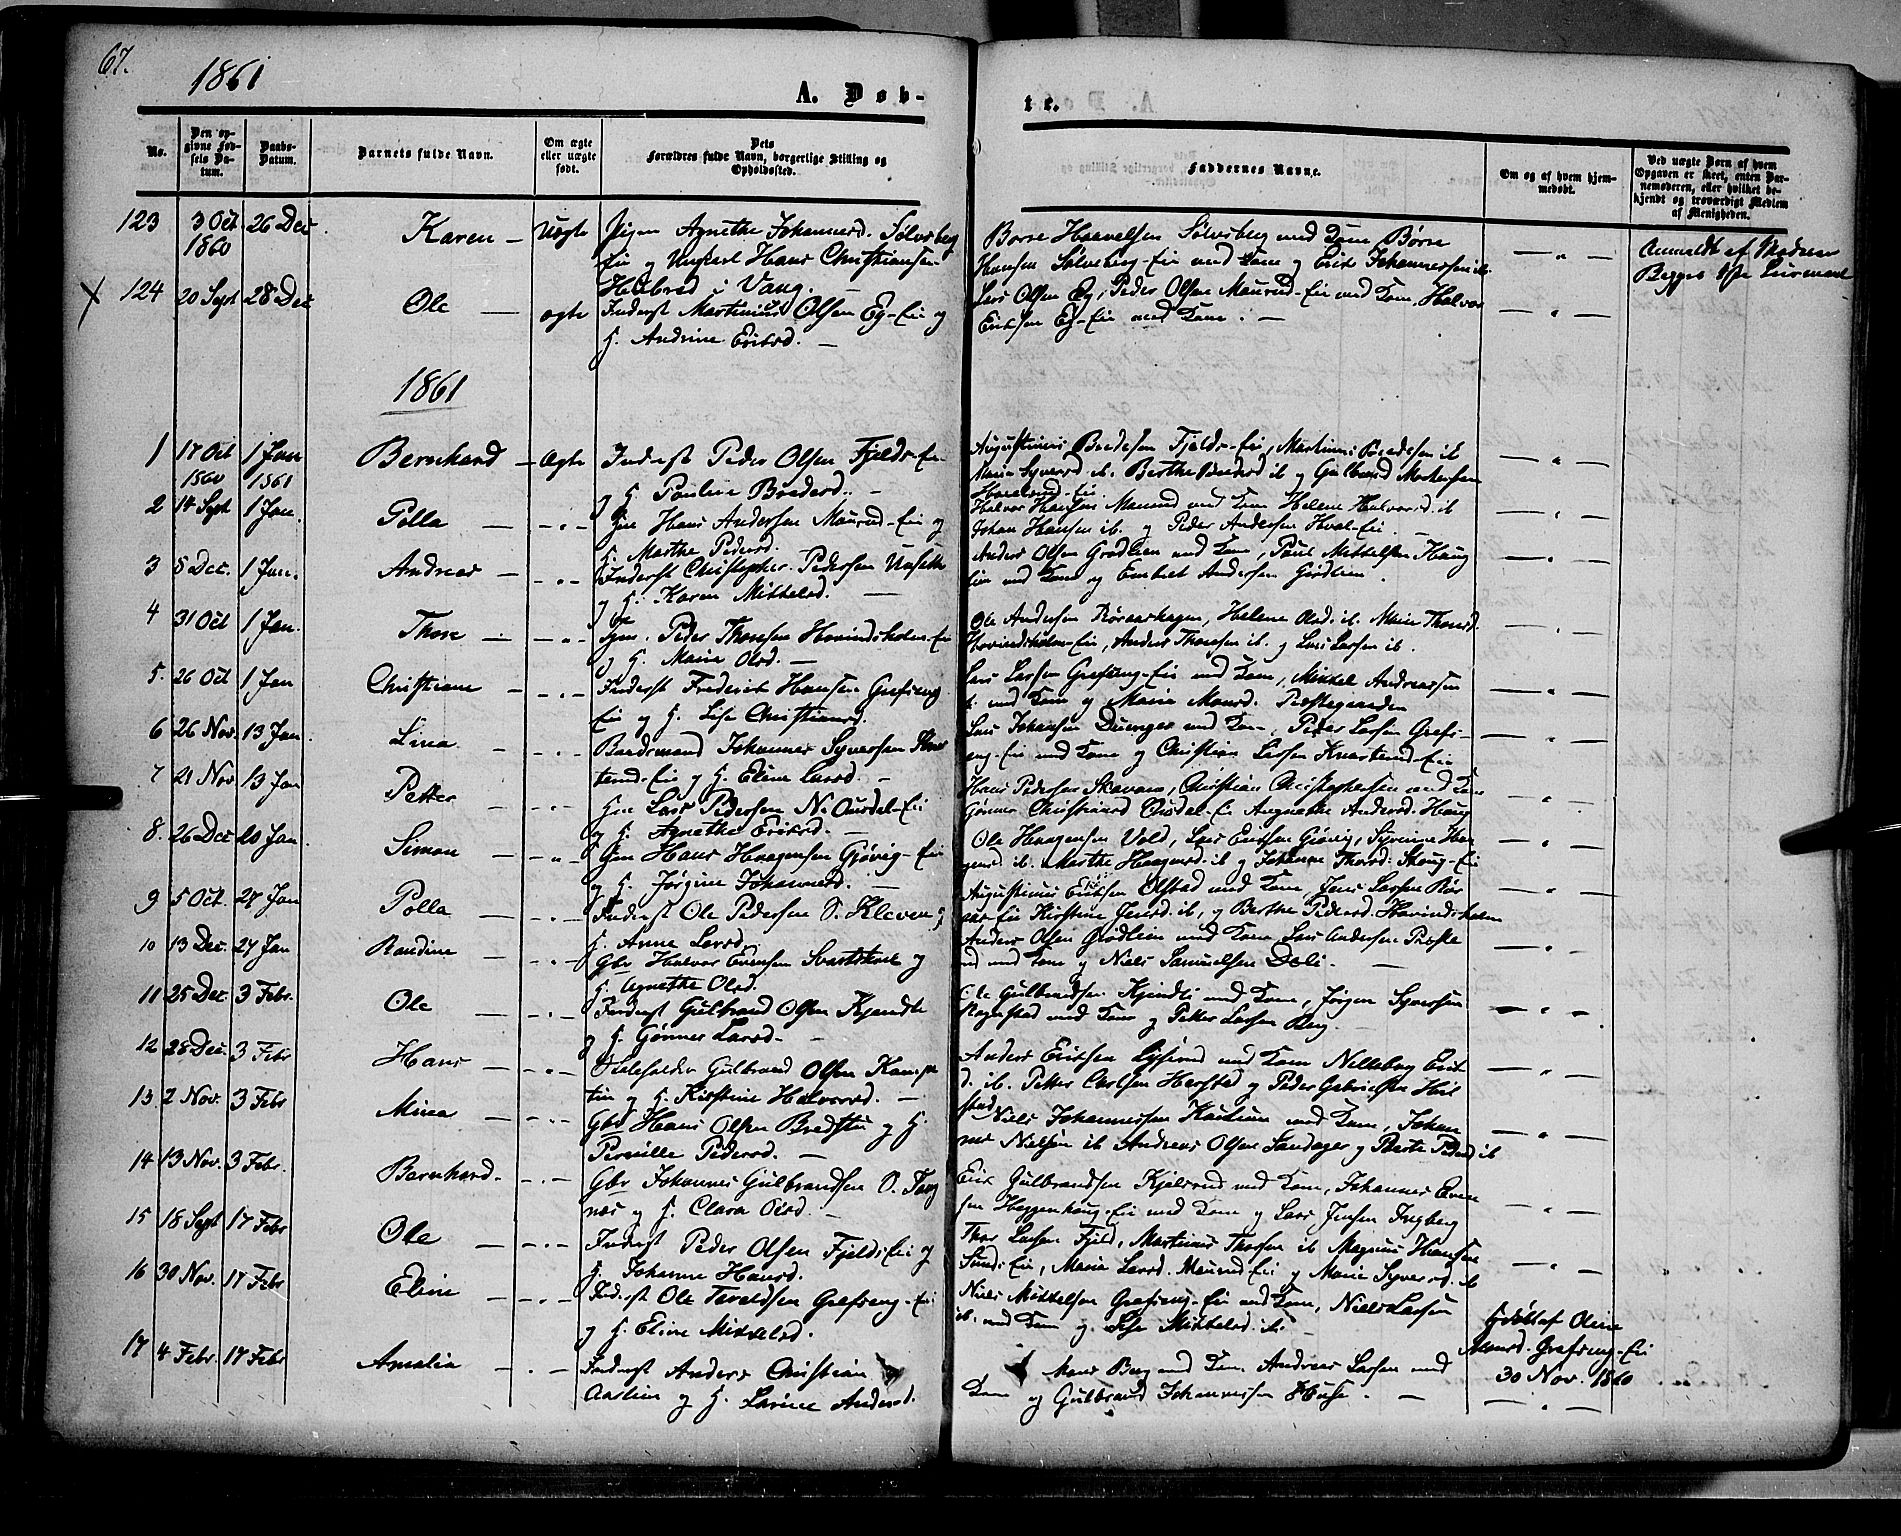 67.
1861
A. Døb-
te.
No.
Den op-
givne Fød-
sels Da-
tum.
Daabs-
Datum.
Barnets fulde Navn.
Om ægte
eller uægte
født.
Dets
Forældres fulde Navn, borgerlige Stilling og
Opholdssted.
Faddernes Navne.
Om og af hvem hjem-
medøbt.
Ved uægte Børn af hvem
Opgaven er skeet, enten Bar-
nemoderen, eller hvilket be-
kjendt og troværdigt Medlem
af Menigheden.
123 3 Oct 1860 26 Dec Karen – Uægte Pigen Agnethe Johannesd. Sølvsberg
Eie og Ungkarl Hans Christiansen
i Vang.
Børre Haavelsen Sølvsberg med Kone Børre
Hansen Sølvsberg-Eie med Kone og Erik Johannessen ib.
Anmeldt af Moderen
Begges 1ste Leiermaal
X 124 20 Sept 28 Dec Ole – ægte Inderst Martinius Olsen Eg-Eie og
H. Andrine Eriksd. –
Lars Olsen Eg, Peder Olsen Maurud-Eie med Kone, Halvor
Eriksen Eg-Eie med Kone. –
1861
1 17 Oct 1860 1 Jan 1861 Bernhard – Ægte Inderst Peder Olsen Fjelds-Eie
og H. Pauline Bredesd. –
Augustinus Bredesen Fjelds-Eie, Martinus Bredesen ib
Maria Syversd ib. Berthe Pedersd ib og Gulbrand
2 14 Sept 1 Jan. Polla – – " – Gm Hans Andersen Maurud-Eie og
H. Marthe Pedersd.
Halvor Hansen Maurud med Kone Helene Halvorsd. ib
Johan Hansen ib. og Peder Andersen Hval-Eie. –
3 5 Dec. 1 Jan. Andreas – – " – Inderst Christopher Pedersen
og H. Karen Mikkelsd. –
Anders Olsen Grødlien med Kone, Paul Mikkelsen Haug
Eie med Kone og Embret Andersen Grødlien.
4 31 Oct 1 Jan. Thore – – " – Peder Thoresen Hovindsholm-Eie
og H. Marie Olsd. –
Ole Andersen, Helene Olsd. ib. Marie Thoresd.
Hovindsholm-Eie, Anders Thoresen ib. og Lars Larsen ib.
5. 26 Oct 1 Jan Christiane – – " – Inderst Frederik Hansen Grefseng
Eie og H. Lise Christiansd.
Lars Larsen Grefseng-Eie med Kone, Mikkel Andreassen
ib. med Kone og Marie Monsd. Prestegaarden
6 26 Nov. 13 Jan. Lina – – " – Baadsmand Johannes Syversen
-Eie og H. Eline Larsd. –
Lars Johansen med Kone, Peder Larsen Grefs-
eng-Eie med Kone og Christian Larsen -Eie
7 21 Nov 13 Jan Petter – – " – Gm Lars Pedersen N. Ousdal-Eie
og H. Agnethe Eriksd. –
Hans Pedersen, Christian Christophersen med Kone
Gønner Christiansd Ousdal-Eie Angnethe Andersd. Haug
8. 26 Dec 20 Jan. Simon – – " – Gm Hans Haagensen Gjøvig-Eie
og H. Jørgine Johannesd. –
Ole Haagensen Vold, Lars Eriksen Gjøvig, Syverine Haa-
gensd ib. Marthe Haagensd. ib og Johanne Thorsd. Skoug-Eie
9 5 Oct. 27 Jan Polla – – " – Inderst Ole Pedersen S. Kleven og
H. Anne Larsd.
Augustinus Eriksen Olstad med Kone, Jens Larsen
Eie Kirstine Jensd. ib, og Berthe Pedersd. Hovindsholm
10 13 Dec. 27 Jan Randine – " – Gbr Halvor Evensen og
H. Agnethe Olsd.
Anders Olsen Grødlien med Kone Lars Andersen
med Kone og Niels Samuelsen Deli. –
11 25 Dec. 3 Febr. Ole – – " – Inderst Gulbrand Olsen Kjendlie
og H. Gønner Larsd. –
Ole Gulbrandsen Kjendli med Kone, Jørgen Syversen
Ragnstad med Kone og Petter Larsen Berg.
12 28 Dec. 3 Febr Hans – " – Gulbrand Olsen
og H. Kirstine Halvorsd. –
Anders Eriksen med Kone
ib. Petter Carlsen og Peder
13. 2 Nov. 3 Febr Mina – – " – Gbr Hans Olsen Bredstu og H.
Pernille Pedersd. –
Niels Johannessen med Kone, Johan-
nes Nielsen ib Andreas Olsen og Berte Pedersd ib
14 13 Nov. 3 Febr. Bernhard. – " – Gbr Johannes Gulbrandsen O. Tang
næs og H. Clara Olsd. –
Erik Gulbrandsen med Kone, Johannes Even-
sen Heggenhoug-Eie med Kone og Lars Jensen Ingberg
15 18 Sept 17 Febr Ole – – " – Inderst Peder Olsen Fjelds-Eie og
H. Johanne Hansd.
Thor Larsen Fjeld, Martinus Thorsen ib Magnus Hansen
Eie, Marie Larsd. Maurud-Eie og Marie Syversd. ib
16 30 Nov. 17 Febr Eline – – " – Inderst Ole Grefseng-Eie
og H. Eline Mikkelsd.
Niels Mikkelsen Grefseng-Eie med Kone, Niels Larsen
ib. med Kone og Lise Mikkelsd. ib. –
Hjdøbt af Oline
Monsd. Grefseng-Eie
30 Nov. 1860
17 4 Febr. 17 Febr Amalia – – " – Inderst Anders Christian
og H. Larine Andersd.
Mons Berg med Kone Andreas Larsen med
Kone og Gulbrand Johannessen Huse. –